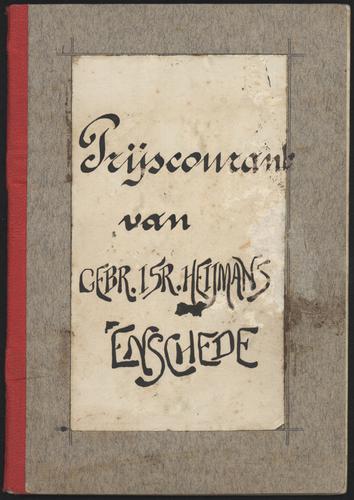 Prijscourant
van
GEBR. ISR. HEIJMANS
ENSCHEDE